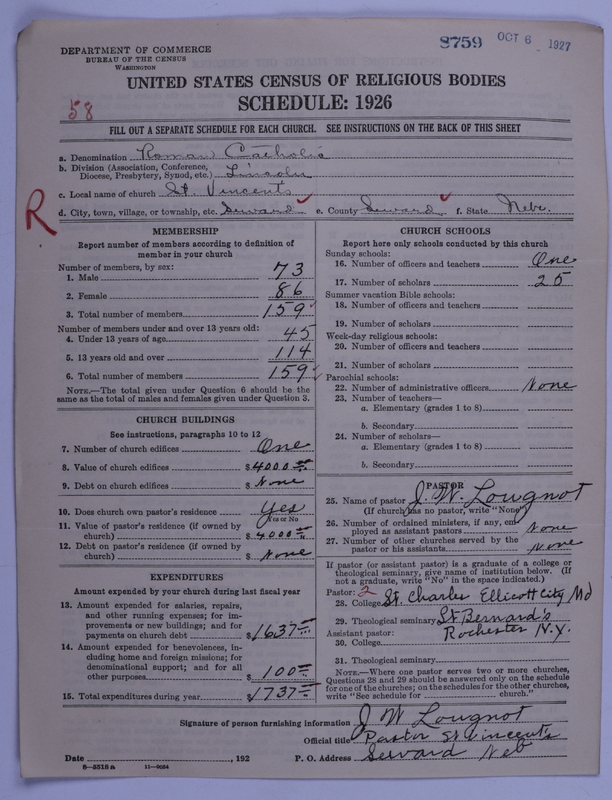 8759 OCT 6 1927
DEPARTMENT OF COMMERCE
BUREAU OF THE CENSUS
WASHINGTON
UNITED STATES CENSUS OF RELIGIOUS BODIES
58
SCHEDULE: 1926
FILL OUT A SEPARATE SCHEDULE FOR EACH CHURCH. SEE INSTRUCTIONS ON THE BACK OF THIS SHEET
a. Denomination Roman Catholic
b. Division (Association, Conference,
Diocese, Presbytery, Synod, etc.) Lincoln
c. Local name of church St. Vincent's
R
d. City, town, village, or township, etc. Seward e. County Seward f. State Nebr.
MEMBERSHIP
Report number of members according to definition of
member in your church
Number of members, by sex:
1. Male 73
2. Female 86
3. Total number of members 159
Number of members under and over 13 years old:
4. Under 13 years of age 45
5. 13 years old and over 114
6. Total number of members 159
NOTE.—The total given under Question 6 should be
same as the total of males and females given under Question 3.
CHURCH BUILDINGS
See instructions, paragraphs 10 to 12
7. Number of church edifices One
8. Value of church edifices $4000
9. Debt on church edifices $ None
10. Does church own pastor's residence? Yes
Yes or No
11. Value of pastor's residence (if owned by
church) $4000
12. Debt on pastor's residence (if owned by
church) $ None
EXPENDITURES
Amount expended by your church during last fiscal year
13. Amount expended for salaries, repairs,
and other running expenses; for im-
provements or new buildings; and for
payments on church debt $1637
14. Amount expended for benevolences, in-
cluding home and foreign missions; for
denominational support; and for all
other purposes $ 100
15. Total expenditures during year $1737
CHURCH SCHOOLS
Report here only schools conducted by this church
Sunday schools:
16. Number of officers and teachers One
17. Number of scholars 25
Summer vacation Bible schools:
18. Number of officers and teachers
19. Number of scholars
Week-day religious schools:
20. Number of officers and teachers
21. Number of scholars
Parochial schools:
22. Number of administrative officers None
23. Number of teachers—
a. Elementary (grades 1 to 8)
b. Secondary
24. Number of scholars—
a. Elementary (grades 1 to 8)
b. Secondary
PASTOR
25. Name of pastor J. W. Lougnot
(If church has no pastor, write "None")
26. Number of ordained ministers, if any, em-
ployed as assistant pastors None
27. Number of other churches served by the
pastor or his assistants None
If pastor (or assistant pastor) is a graduate of a college or
theological seminary, give name of institution below. (If
not a graduate, write "No" in the space indicated.)
Pastor: 2
28. College St. Charles Ellicott City Md
29. Theological seminary St Bernard's
Assistant pastor: Rochester N.Y.
30. College
31. Theological seminary
NOTE.—Where one pastor serves two or more churches,
Questions 28 and 29 should be answered only on the schedule
for one of the churches; on the schedules for the other churches,
write "See schedule for church."
Signature of person furnishing information J W Lougnot
Official title Pastor St Vincents
Date , 192 P. O. Address Seward Neb
8—5515 a 11—9034